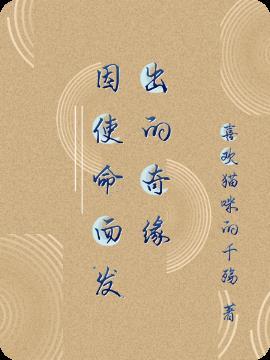 因使命而发
出的奇缘
喜欢猫咪的千殇、著